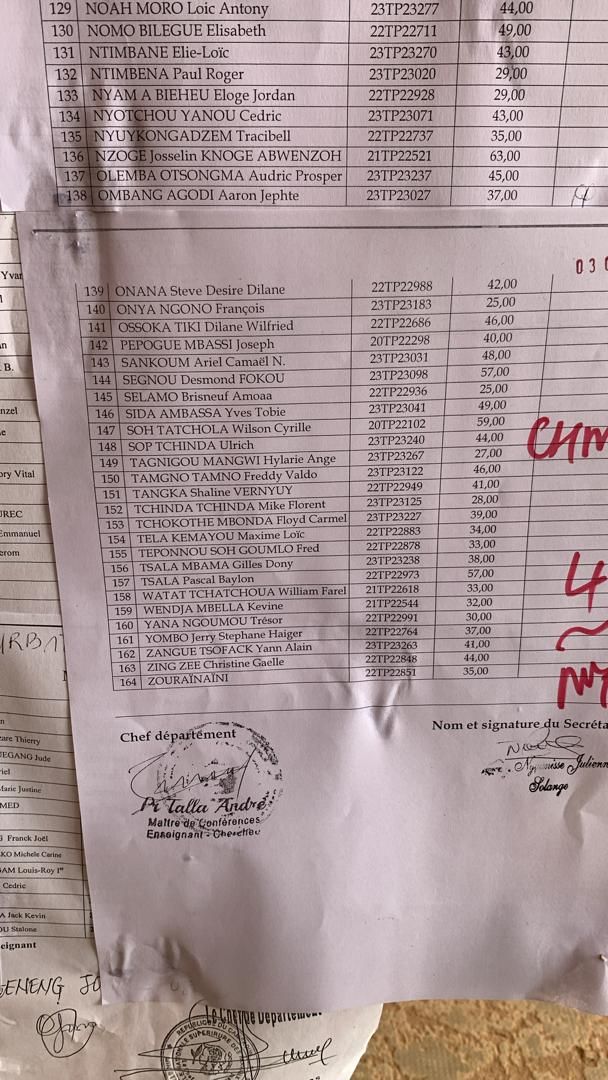 129 NOAH MORO Loic Antony 23TP23277 44,00
130 NOMO BILEGUE Elisabeth 22TP22711 49,00
131 NTIMBANE Elie-Loïc 23TP23270 43,00
132 NTIMBENA Paul Roger 23TP23020 29,00
133 NYAM A BIEHEU Eloge Jordan 22TP22928 29,00
134 NYOTCHOU YANOU Cedric 23TP23071 43,00
135 NYUYKONGADZEM Tracibell 22TP22737 35,00
136 NZOGE Josselin KNOGE ABWENZOH 21TP22521 63,00
137 OLEMBA OTSONGMA Audric Prosper 23TP23237 45,00
138 OMBANG AGODI Aaron Jephte 23TP23027 37,00
030
139 ONANA Steve Desire Dilane 22TP22988 42,00
140 ONYA NGONO François 23TP23183 25,00
141 OSSOKA TIKI Dilane Wilfried 22TP22686 46,00
142 PEPOGUE MBASSI Joseph 20TP22298 40,00
143 SANKOUM Ariel Camaël N. 23TP23031 48,00
144 SEGNOU Desmond FOKOU 23TP23098 57,00
145 SELAMO Brisneuf Amoaa 22TP22936 25,00
146 SIDA AMBASSA Yves Tobie 23TP23041 49,00
147 SOH TATCHOLA Wilson Cyrille 20TP22102 59,00
148 SOP TCHINDA Ulrich 23TP23240 44,00
149 TAGNIGOU MANGWI Hylarie Ange 23TP23267 27,00
150 TAMGNO TAMNO Freddy Valdo 23TP23122 46,00
151 TANGKA Shaline VERNYUY 22TP22949 41,00
152 TCHINDA TCHINDA Mike Florent 23TP23125 28,00
153 TCHOKOTHE MBONDA Floyd Carmel 23TP23227 39,00
154 TELA KEMAYOU Maxime Loïc 22TP22883 34,00
155 TEPONNOU SOH GOUMLO Fred 22TP22878 33,00
156 TSALA MBAMA Gilles Dony 23TP23238 38,00
157 TSALA Pascal Baylon 22TP22973 57,00
158 WATAT TCHATCHOUA William Farel 21TP22618 33,00
159 WENDJA MBELLA Kevine 21TP22544 32,00
160 YANA NGOUMOU Trésor 22TP22991 30,00
161 YOMBO Jerry Stephane Haiger 22TP22764 37,00
162 ZANGUE TSOFACK Yann Alain 23TP23263 41,00
163 ZING ZEE Christine Gaelle 22TP22848 44,00
164 ZOURAÏNAÏNI 22TP22851 35,00
Chef département
Nom et signature du Secréta
Pi Talla André
Maître de Conférences
Enseignant - Chercheur
Julienn
Solange
Yvan
B.
nzel
ory Vital
UREC
Emmanuel
erom
zare Thierry
UEGANG Jude
riel
Marie Justine
MED
Franck Joël
KO Michele Carine
GAM Louis-Roy 1er
Cedric
A Jack Kevin
OU Stalone
eignant